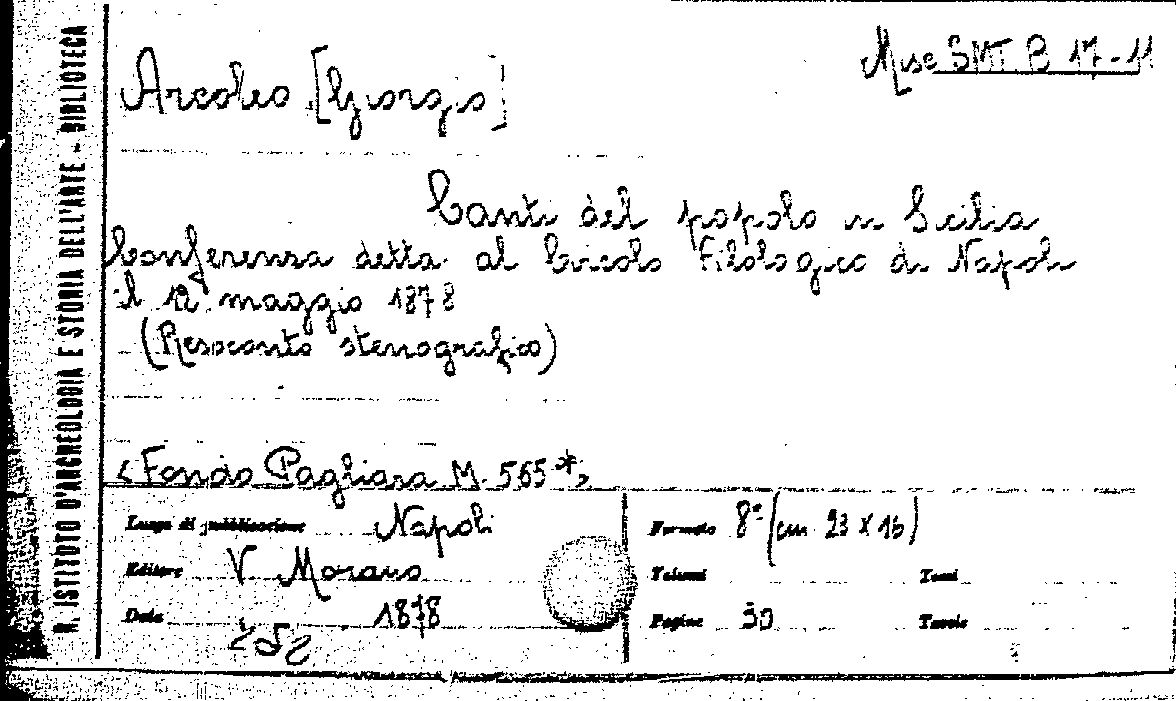 R. ISTITUTO D'ARCHEOLOGIA E STORIA DELL'ARTE - BIBLIOTECA
Misc SMT B 17-11
Arcoleo [Giorgio]
Canti del popolo in Sicilia
Conferenza detta al Circolo Filologico di Napoli
il 12 maggio 1878
(Resoconto stenografico)
<Fondo Pagliara M. 565*>
Luogo di pubblicazione Napoli
Editore V Morano
Data 1878
Formato 8° (cm 23 x 16)
Volumi Tomi
Pagine 39 Tavole